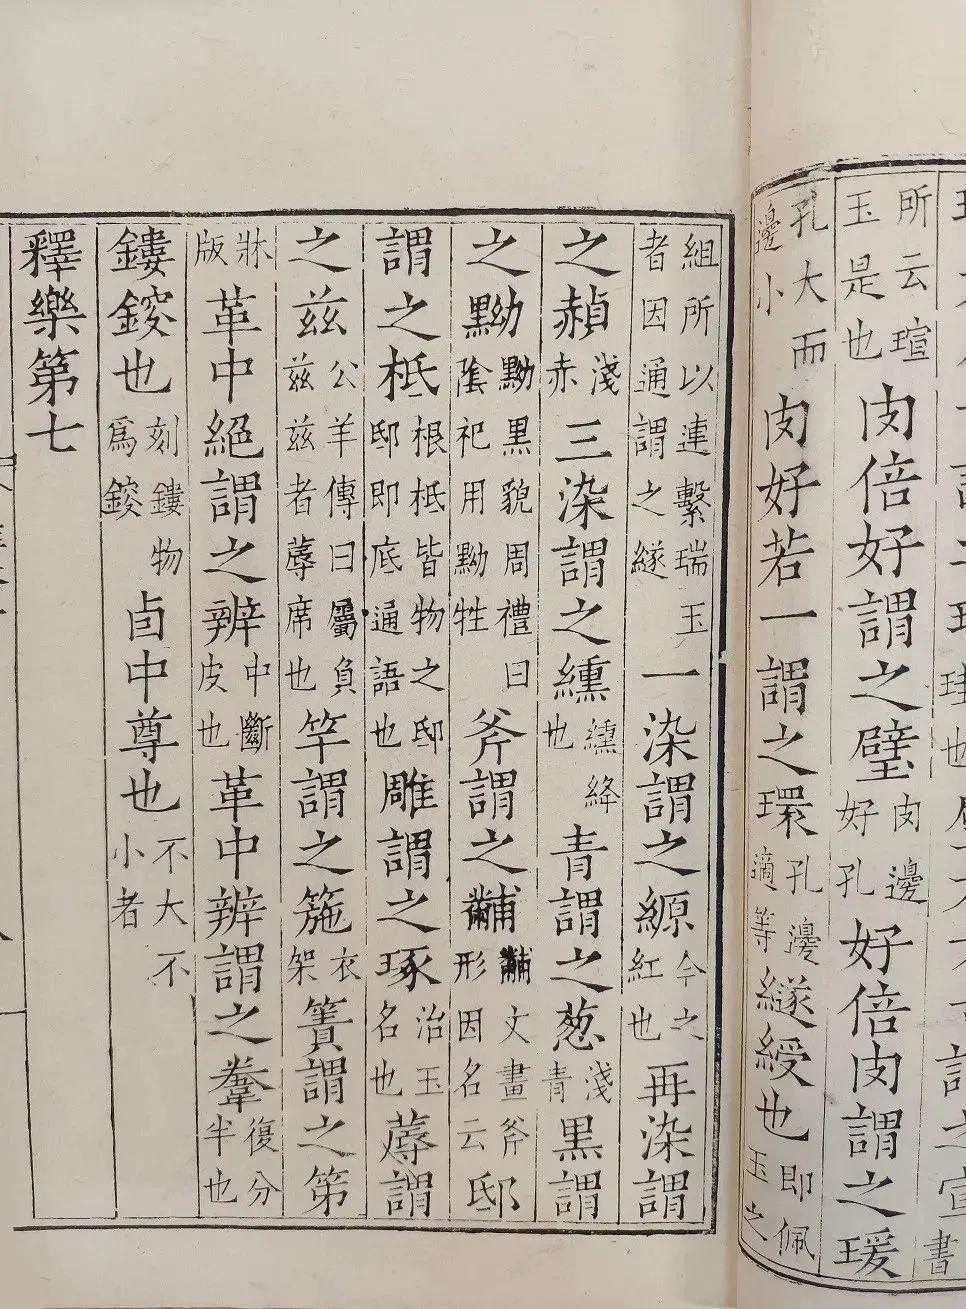 所云瑄玉是也肉倍好謂之璧肉邊好孔好倍肉謂之瑗
孔大而邊小肉好若一謂之環孔邊適等繸綬也即佩玉之
組所以連繫瑞玉者因通謂之繸一染謂之縓今之紅也再染謂
之赬淺赤三染謂之纁纁絳也青謂之葱淺青黑謂
之黝黝黑貌周禮曰隂祀用黝牲斧謂之黼黼文畫斧形因名云邸
謂之柢根柢皆物之邸邸即底通語也雕謂之琢治玉名也蓐謂
之茲公羊傳曰屬負茲茲者蓐席也竿謂之箷衣架簀謂之第
牀版革中絕謂之辨中斷皮也革中辨謂之韏復分半也
鏤鋑也刻鏤物爲鋑卣中尊也不大不小者
釋樂第七